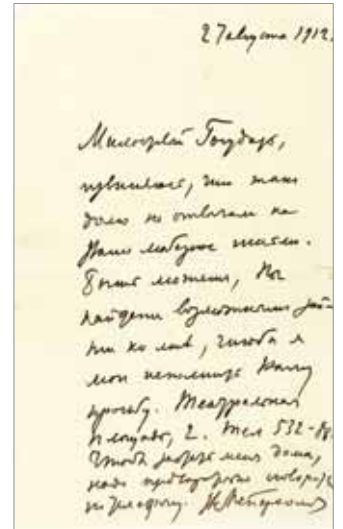 27 августа 1912.
Милостивый Государь,
извините, что так
долго не отвечал на
Ваше любезное письмо.
Быть может, Вы
найдете возможным зай-
ти ко мне, чтобы я
мог исполнить Вашу
просьбу. Театральная
площадь, 2. Тел 532-
Чтобы застать меня дома,
надо предварительно
по телефону.